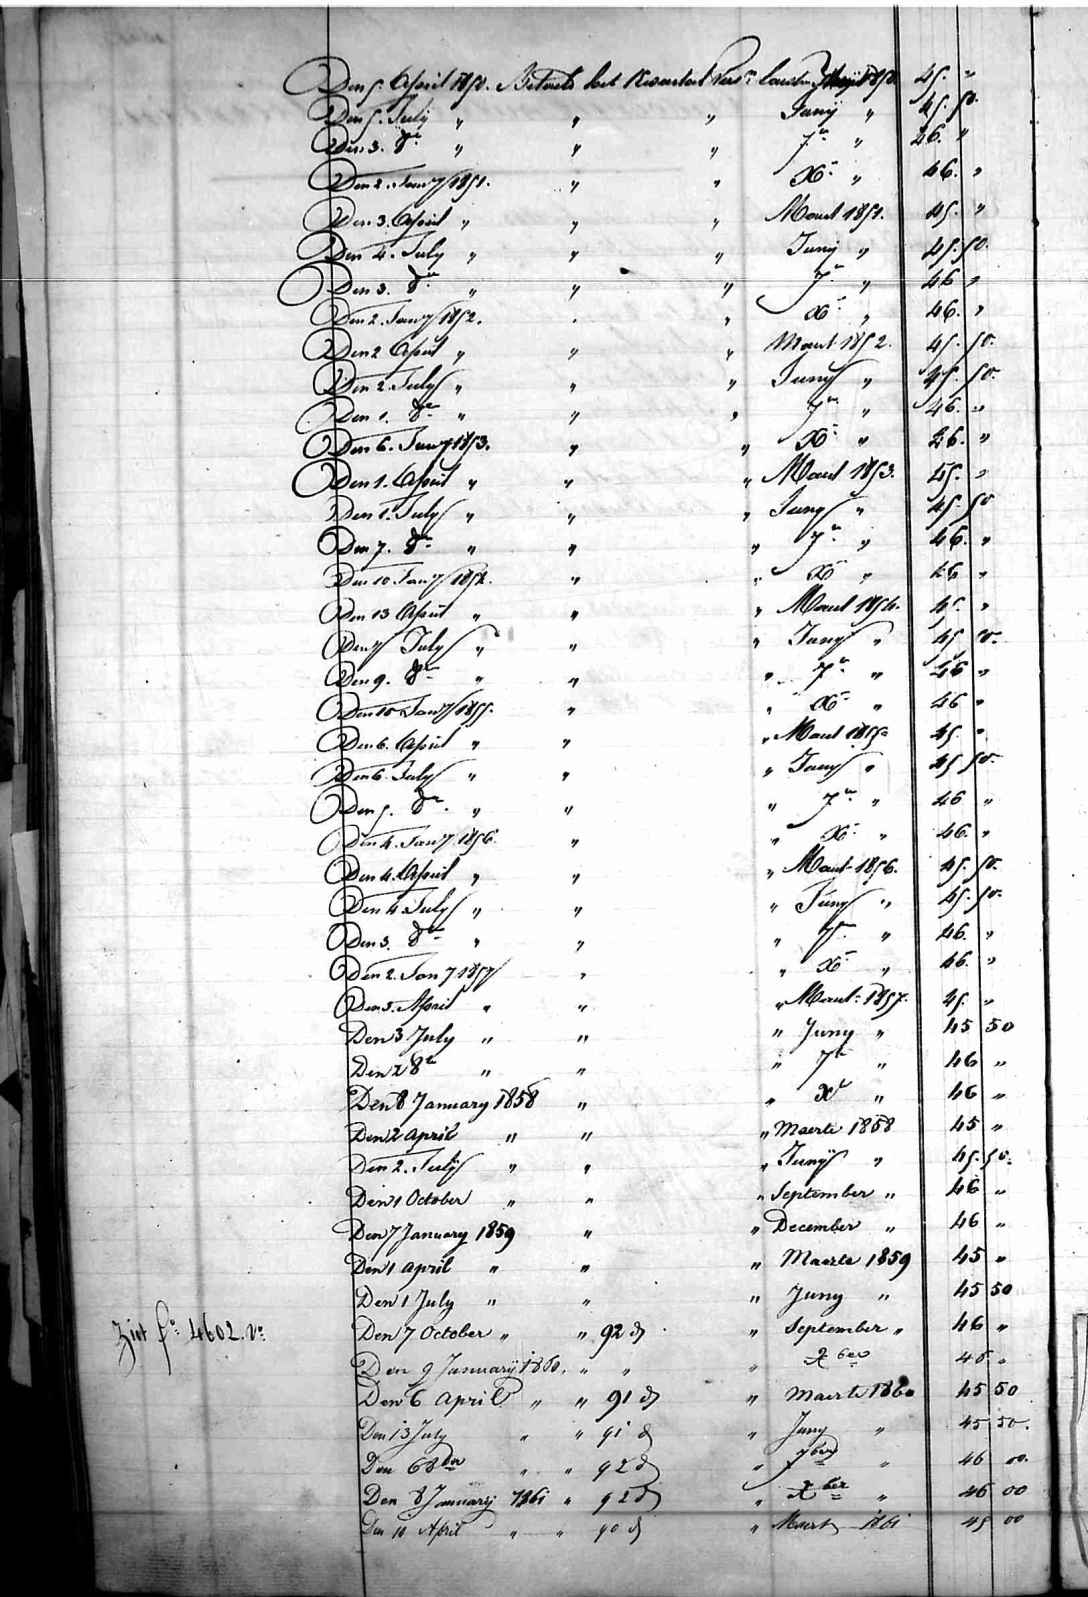 Den 5. April 1850. Betaald het Kwartaal Vers.n laasten Maart 1850. 45. "
Den 5. July " " " Juny " 45. 50.
Den 3. 8br " " " 7br " 46. "
Den 2. Jany 1851. " " Xr " 46. "
Den 3. April " " " Maart 1851. 45. "
Den 4. July " " " Juny " 45. 50.
Den 3. 8br " " " 7br " 46 "
Den 2. Jany 1852. " " Xr " 46. "
Den 2 April " " " Maart 1852. 45. 50.
Den 2. July " " " Juny " 45. 50.
Den 1. 8br " " " 7br " 46. "
Den 6. Jany 1853. " " Xr " 46. "
Den 1. April " " " Maart 1853. 45. "
Den 1. July " " " Juny " 45. 50
Den 7. 8br " " " 7br " 46. "
Den 10. Jany 1854. " " Xr " 46 "
Den 13 April " " " Maart 1854. 45. "
Den 7 July " " " Juny " 45 50.
Den 9. 8br " " " 7br " 46 "
Den 15 Jany 1855. " " Xr " 46 "
Den 6. April " " " Maart 1855 45. "
Den 6. July " " " Juny " 45 50.
Den 5. 8br " " " 7br " 46 "
Den 4. Jany 1856 " " Xr " 46. "
Den 4. April " " " Maart 1856. 45. 50.
Den 4 July " " " Juny " 45. 50.
Den 3. 8br " " " 7br " 46. "
Den 2. Jany 1857 " " Xr " 46. "
Den 3. April " " " Maart 1857. 45. "
Den 3 July " " " Juny " 45 50
Den 2 8br " " " 7br " 46 "
Den 8 January 1858 " " Xr " 46 "
Den 2 april " " " Maerte 1858 45 "
Den 2. July " " " Junij " 45. 50.
Den 1 October " " " September " 46 "
Den 7 January 1859 " " December " 46 "
Den 1 april " " " Maerte 1859 45 "
Den 1 July " " " Juny " 45 50
Ziet f° 4602. v°
Den 7 October " " 92 d " September " 46 "
Den 9 Januarij 1860. " " " Xber 46 "
Den 6 April " " 91 d " Maerte 1860 45 50
Den 13 July " " 91 d " Juny " 45 50.
Den 6 8ber " " 92 d " 7ber " 46 00.
Den 8 January 1861 " 92 d " Xber " 46 00
Den 10 April " " 90 d " Maert 1861 45 00